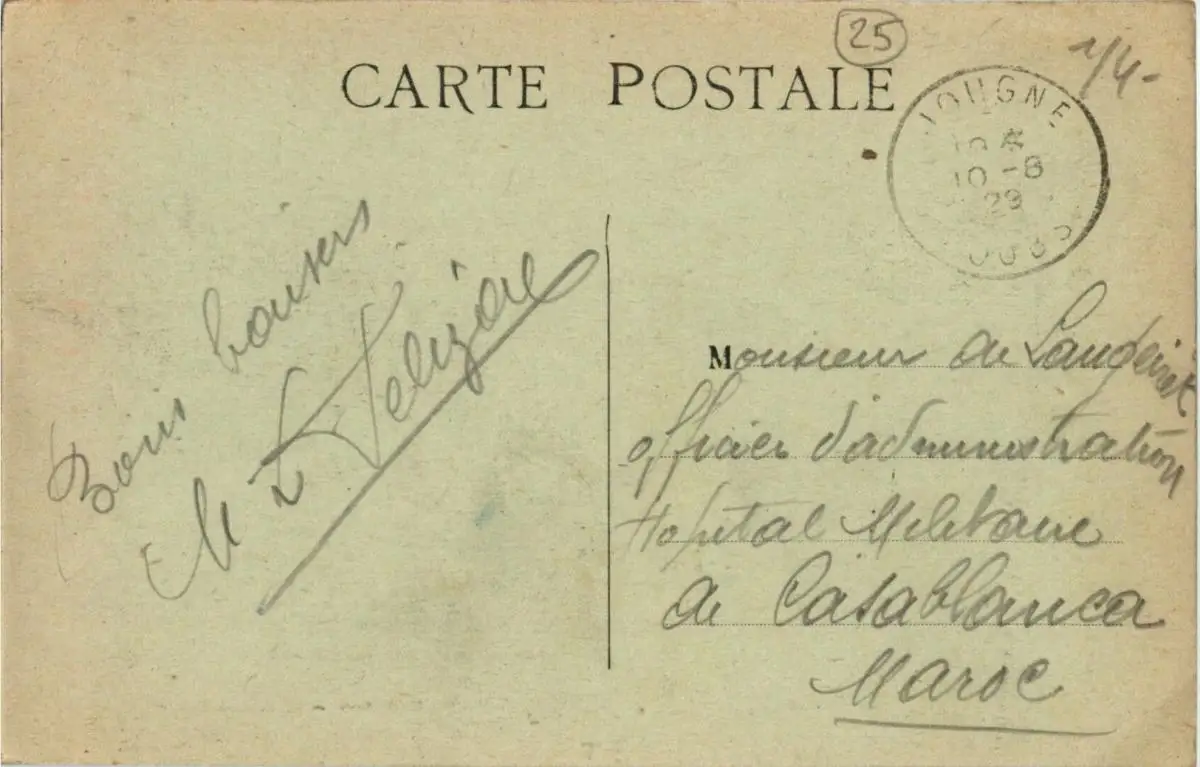 25
CARTE POSTALE
JOUGNE
10-8
29
DOUBS
Bons baisers
Monsieur de
officier d'administration
Hopital Militaire
de Casablanca
Maroc